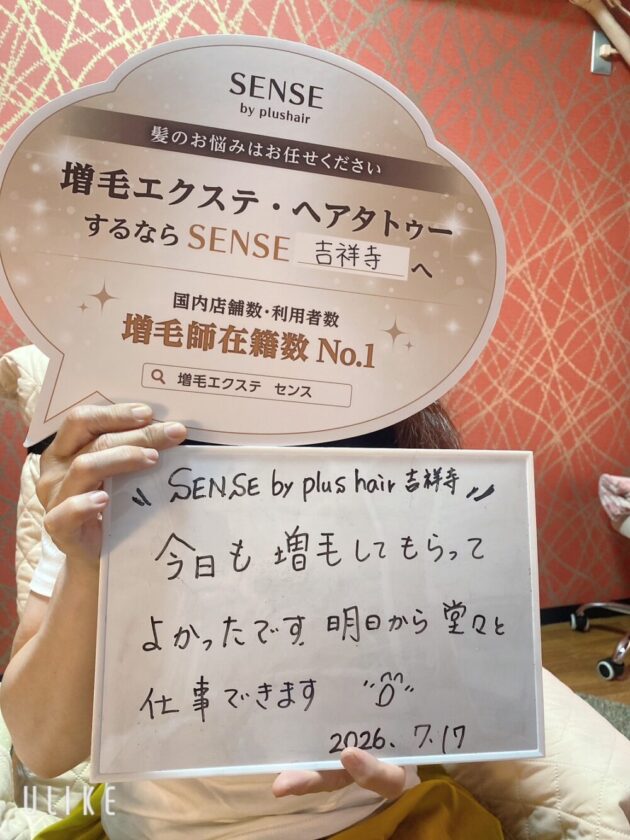 SENSE
by plushair
髪のお悩みはお任せください
増毛エクステ・ヘアタトゥー
するなら SENSE 吉祥寺 へ
国内店舗数・利用者数
増毛師在籍数 No.1
増毛エクステ センス
SENSE by plus hair 吉祥寺
今日も 増毛してもらって
よかったです 明日から 堂々と
仕事できます
2026. 7.17
ULIKE